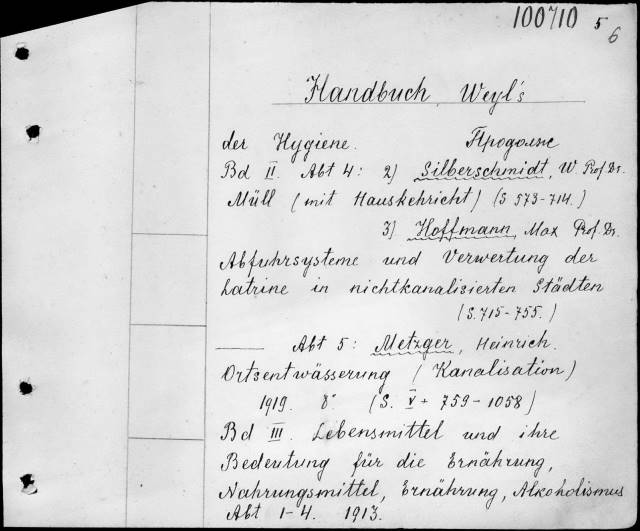 100710 5
6
Handbuch Weyl's
der Hygiene. Продолж
Bd II. Abt 4: 2) Silberschmidt, W. Prof. Dr.
Müll (mit Hauskehricht) (S 573-714.)
3) Hoffmann, Max Prof. Dr.
Abfuhrsysteme und Verwertung der
Latrine in nichtkanalisierten Städten
(S. 715-755.)
—— Abt 5: Metzger, Heinrich.
Ortsentwässerung (Kanalisation)
1919. 8° (S. V + 759-1058)
Bd III. Lebensmittel und ihre
Bedeutung für die Ernährung,
Nahrungsmittel, Ernährung, Alkoholismus
Abt 1-4. 1913.